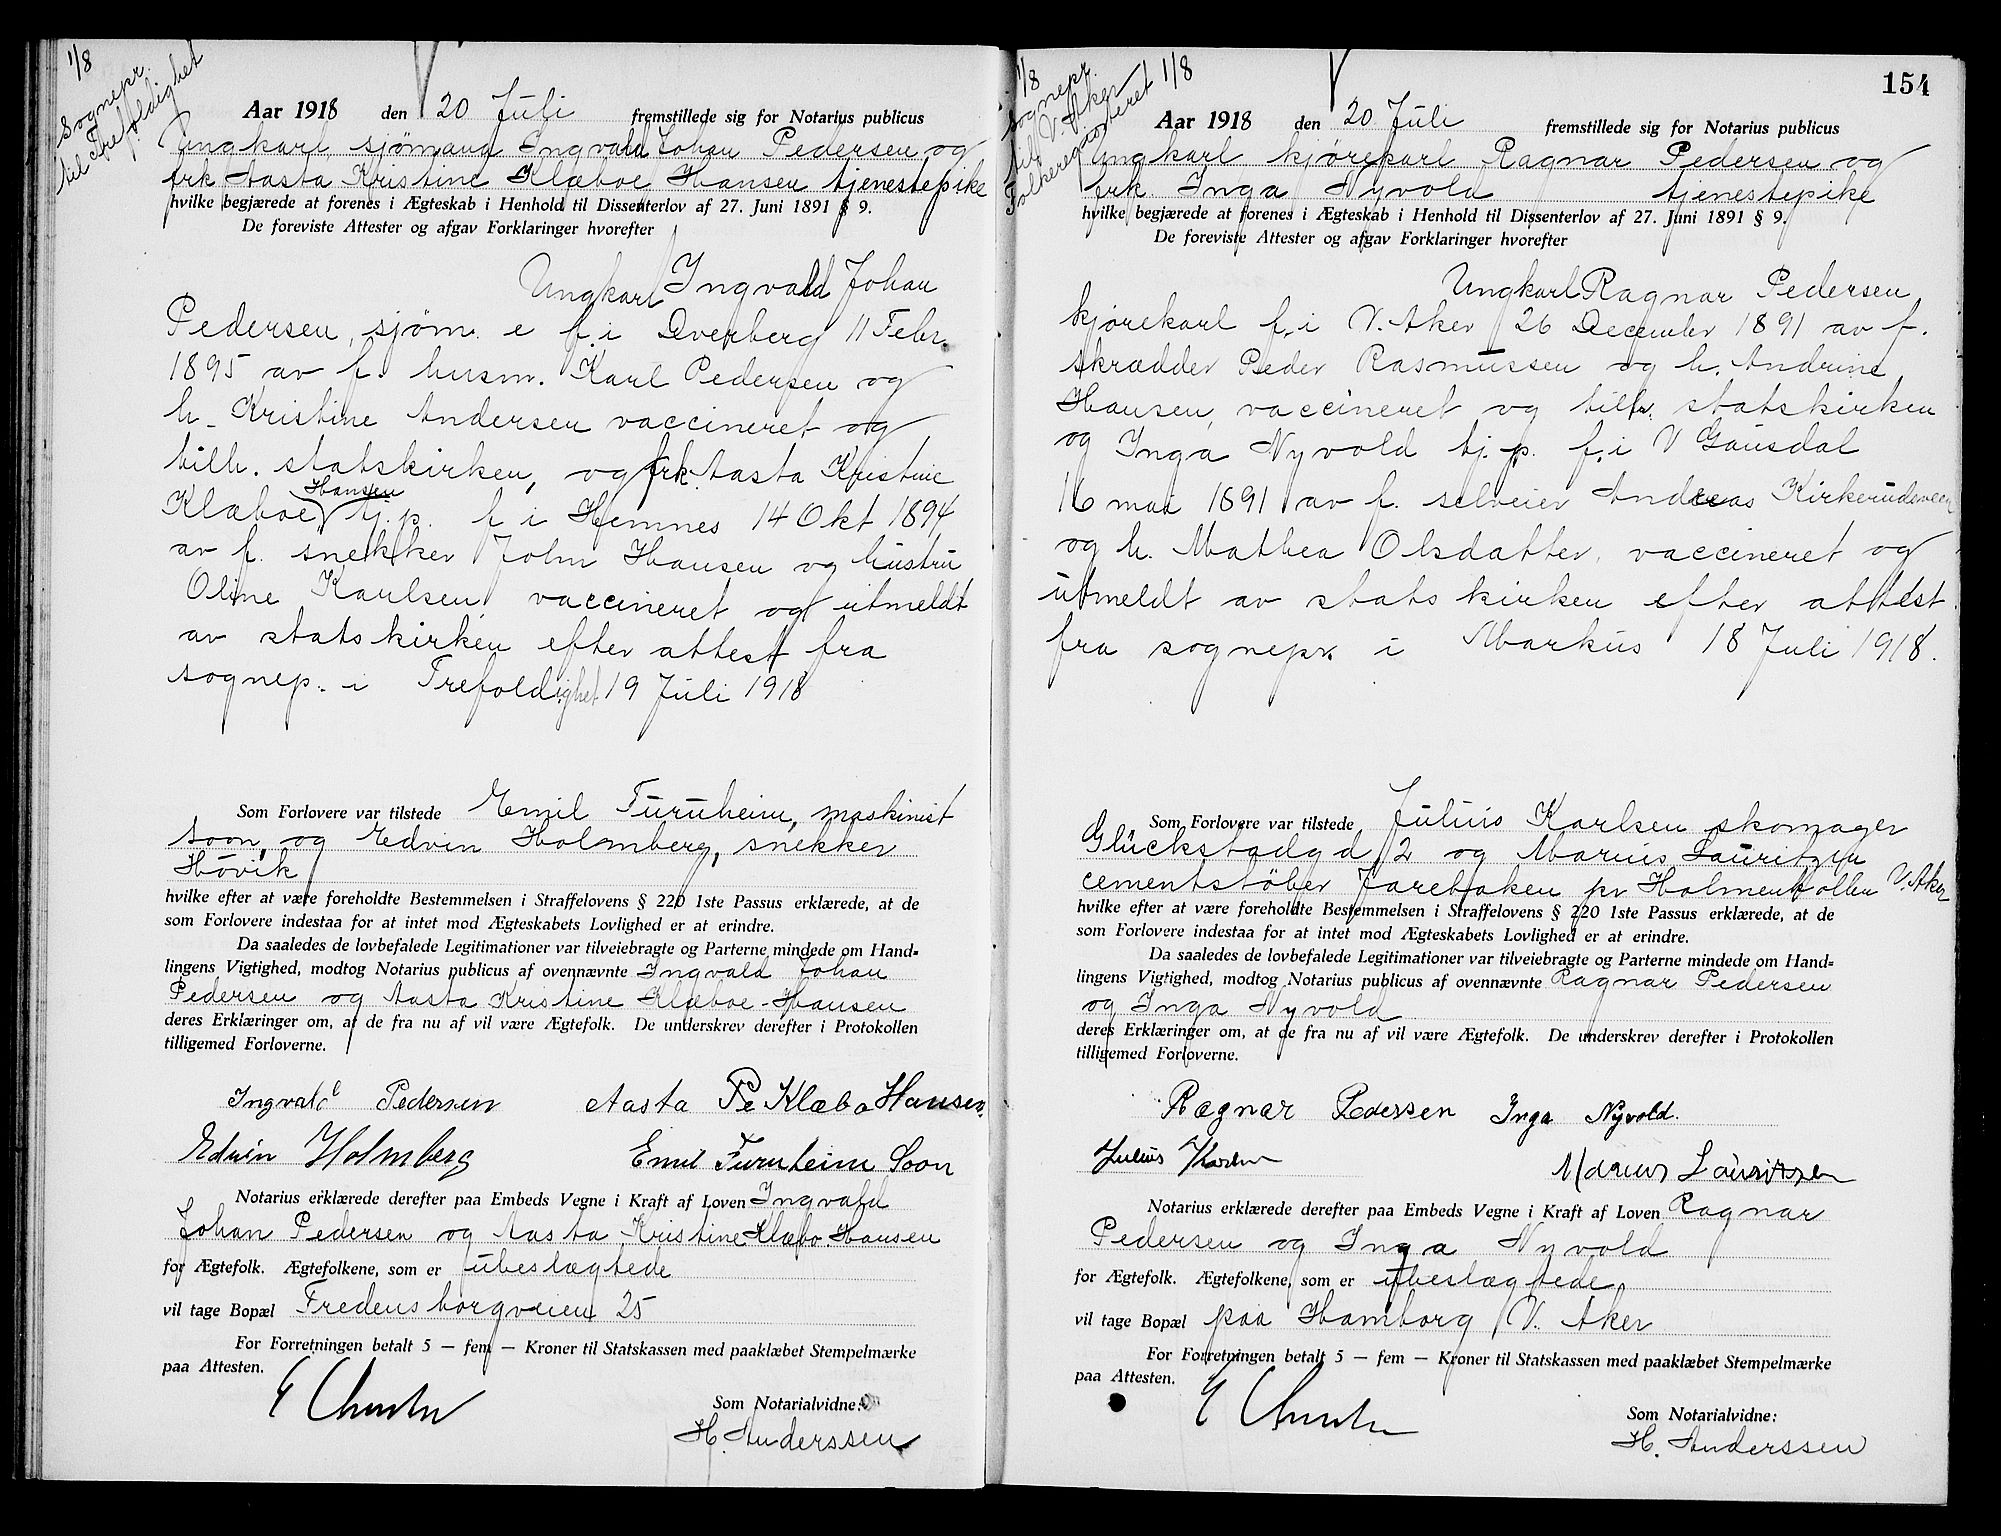 1/8
Sognepr.
til Trefoldighet
Aar 1918 den 20 Juli fremstillede sig for Notarius publicus
Ungkarl, sjømand Ingvald Johan Pedersen og
frk Aasta Kristine Klæboe Hansen tjenestepike
hvilke begjærede at forenes i Ægteskab i Henhold til Dissenterlov af 27. Juni 1891 § 9.
De foreviste Attester og afgav Forklaringer hvorefter
Ungkarl Ingvald Johan
Pedersen, sjøm. e f. i Dverberg 11 Febr.
1895 av f. husm. Karl Pedersen og
h. Kristine Andersen vaccineret og
tilh. statskirken, og frk. Aasta Kristine
Klæboe Hansen tj.p. f i Hemnes 14 Okt 1894
av f. snekker John Hansen og hustru
Oline Karlsen vaccineret og utmeldt
av statskirken efter attest fra
sognep. i Trefoldighet 19 Juli 1918
Som Forlovere var tilstede Emil Furuheim, maskinist
Soon, og Edvin Holmberg, snekker
Høvik
hvilke efter at være foreholdte Bestemmelsen i Straffelovens § 220 1ste Passus erklærede, at de
som Forlovere indestaa for at intet mod Ægteskabets Lovlighed er at erindre.
Da saaledes de lovbefalede Legitimationer var tilveiebragte og Parterne mindede om Hand-
lingens Vigtighed, modtog Notarius publicus af ovennævnte Ingvald Johan
Pedersen og Aasta Kristine Klæboe-Hansen
deres Erklæringer om, at de fra nu af vil være Ægtefolk. De underskrev derefter i Protokollen
tilligemed Forloverne.
Ingvald Pedersen Aasta Pe Klæbo Hansen.
Edvin Holmberg Emil Furuheim Soon
Notarius erklærede derefter paa Embeds Vegne i Kraft af Loven Ingvald
Johan Pedersen og Aasta Kristine Klæbo Hansen
for Ægtefolk. Ægtefolkene, som er ubeslægtede
vil tage Bopæl Fredensborgveien 25
For Forretningen betalt 5 — fem — Kroner til Statskassen med paaklæbet Stempelmærke
paa Attesten.
Som Notarialvidne:
H. Anderssen
154
1/8
Sognepr.
til V. Aker
Folkeregisteret 1/8
Aar 1918 den 20 Juli fremstillede sig for Notarius publicus
Ungkarl kjørekarl Ragnar Pedersen og
frk. Inga Nyvold tjenestepike
hvilke begjærede at forenes i Ægteskab i Henhold til Dissenterlov af 27. Juni 1891 § 9.
De foreviste Attester og afgav Forklaringer hvorefter
Ungkarl Ragnar Pedersen
kjørekarl f. i V. Aker 26 December 1891 av f.
skrædder Peder Rasmussen og h. Andrine
Hansen, vaccineret og tilh. statskirken
og Inga Nyvold tj. p. f. i V Gausdal
16 mai 1891 av f. selveier Andreas Kirkerudsveen
og h. Mathea Olsdatter, vaccineret og
utmeldt av statskirken efter attest
fra sognepr. i Markus 18 Juli 1918.
Som Forlovere var tilstede Julius Karlsen skomager
Glückstadgd 2 og Marius Lauritzen
cementstøber Jarebaken pr Holmenkollen V. Aker
hvilke efter at være foreholdte Bestemmelsen i Straffelovens § 220 1ste Passus erklærede, at de
som Forlovere indestaa for at intet mod Ægteskabets Lovlighed er at erindre.
Da saaledes de lovbefalede Legitimationer var tilveiebragte og Parterne mindede om Hand-
lingens Vigtighed, modtog Notarius publicus af ovennævnte Ragnar Pedersen
og Inga Nyvold
deres Erklæringer om, at de fra nu af vil være Ægtefolk. De underskrev derefter i Protokollen
tilligemed Forloverne.
Ragnar Pedersen Inga Nyvold.
Julius Karlsen Marius Lauritzen
Notarius erklærede derefter paa Embeds Vegne i Kraft af Loven Ragnar
Pedersen og Inga Nyvold
for Ægtefolk. Ægtefolkene, som er ubeslægtede
vil tage Bopæl paa Hamborg V. Aker
For Forretningen betalt 5 — fem — Kroner til Statskassen med paaklæbet Stempelmærke
paa Attesten.
Som Notarialvidne:
H. Anderssen